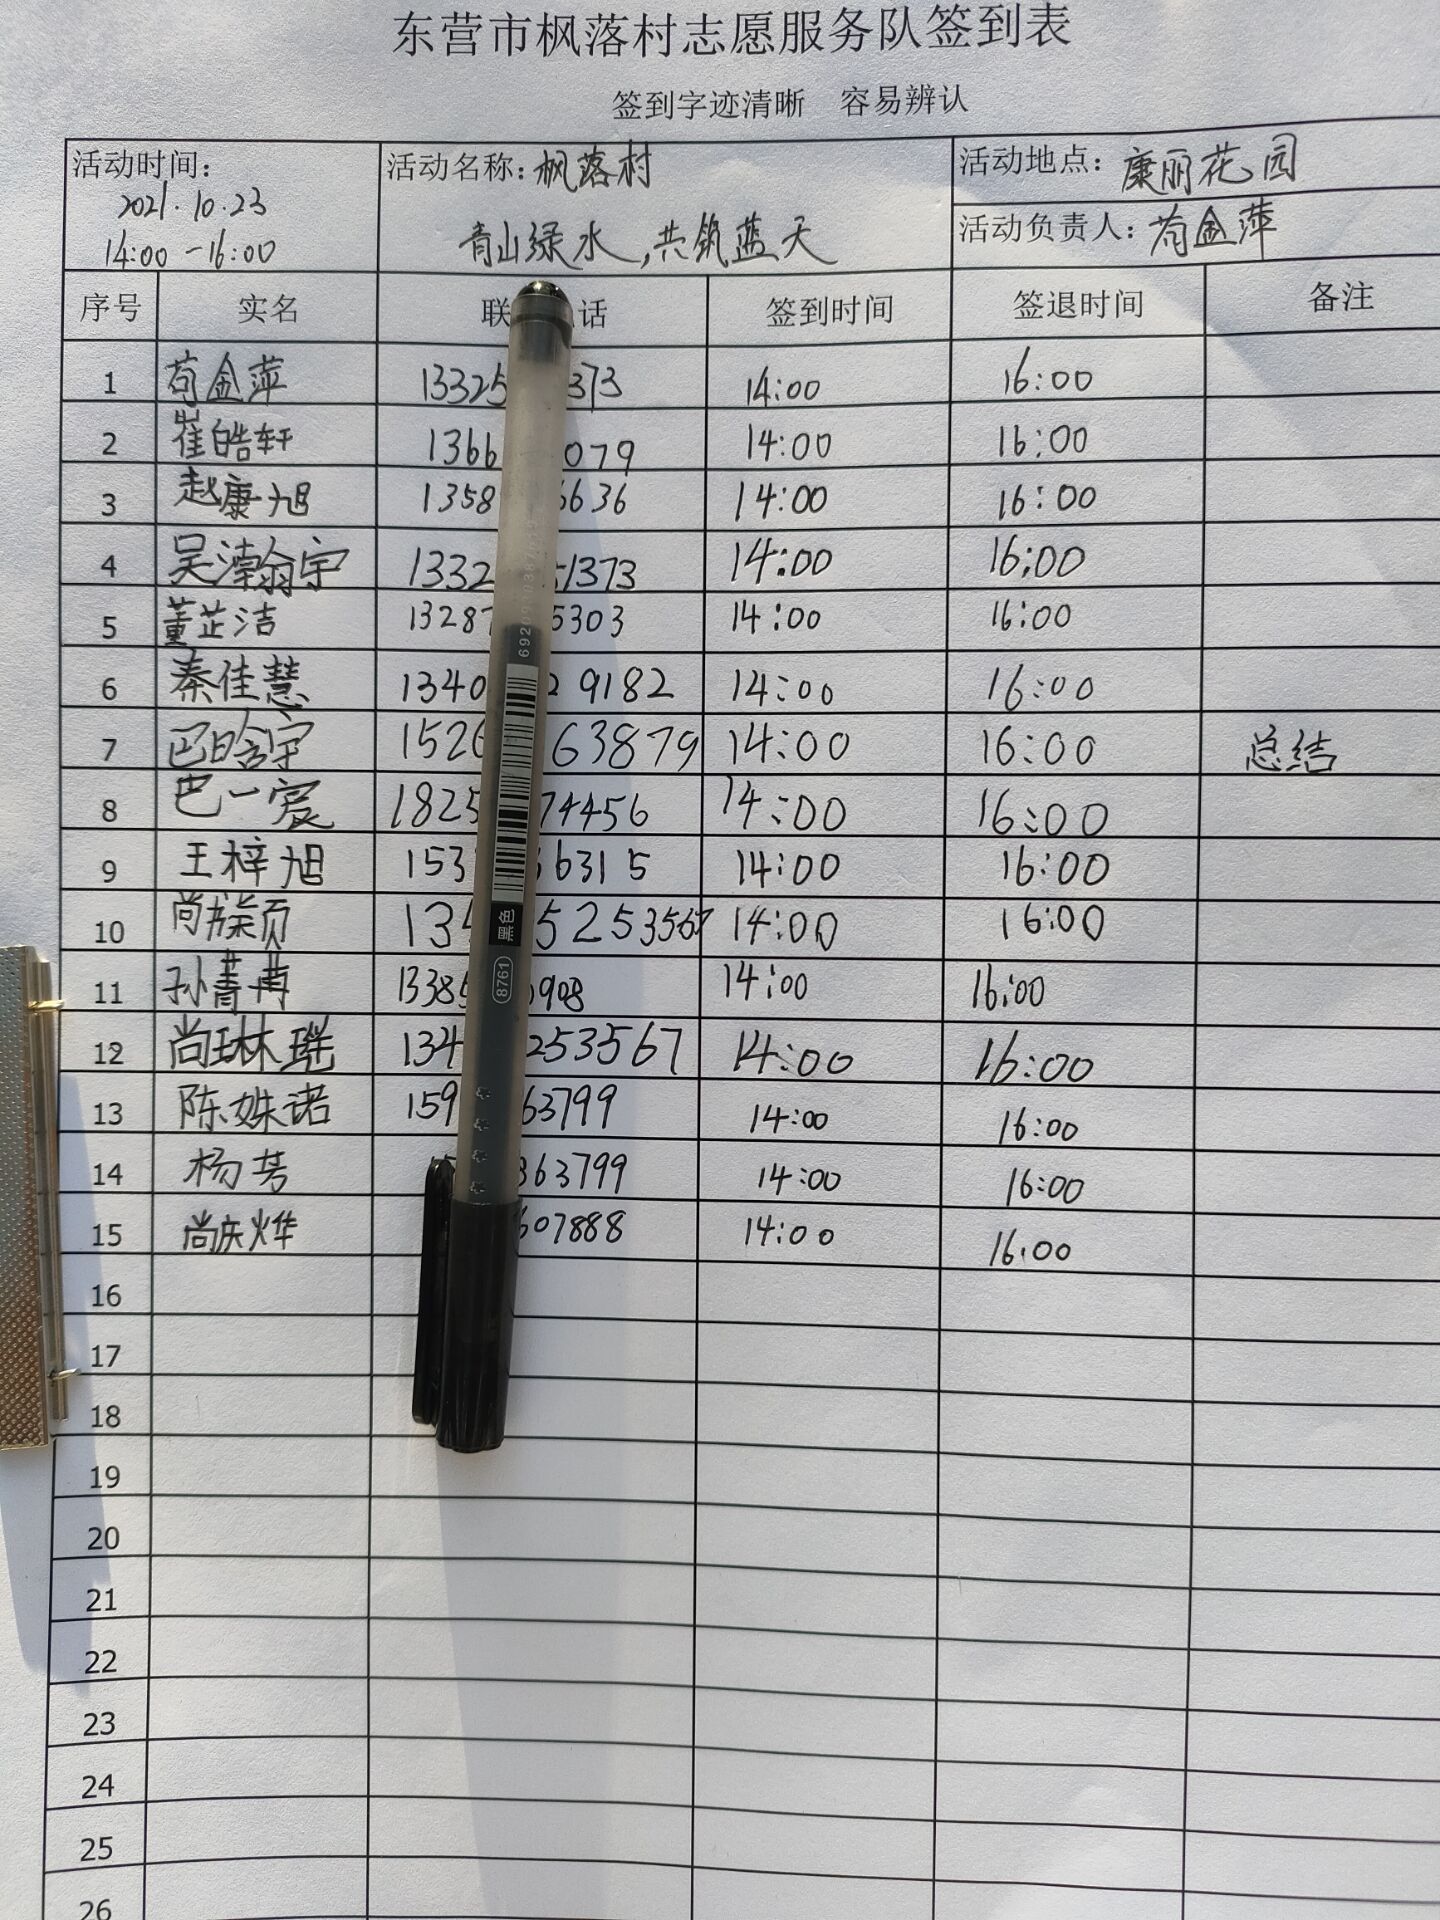 东营市枫落村志愿服务队签到表
签到字迹清晰 容易辨认
活动时间: 活动名称: 枫落村 活动地点: 康丽花园
2021.10.23
14:00-16:00 青山绿水,共筑蓝天 活动负责人: 苟金萍
序号 实名 联 话 签到时间 签退时间 备注
1 苟金萍 13325 373 14:00 16:00
2 崔皓轩 1366 079 14:00 16:00
3 赵康旭 1358 6636 14:00 16:00
4 吴瀚宇 1332 1373 14:00 16:00
5 董芷洁 1328 5303 14:00 16:00
6 秦佳慧 1340 2 9182 14:00 16:00
7 巴晗宇 1526 63879 14:00 16:00 总结
8 巴一宸 1825 74456 14:00 16:00
9 王梓旭 153 6315 14:00 16:00
10 134 5253567 14:00 16:00
11 孙菁苒 1338 908 14:00 16:00
12 尚琳瑶 134 253567 14:00 16:00
13 陈姝诺 159 63799 14:00 16:00
14 杨芳 863799 14:00 16:00
15 尚庆烨 607888 14:00 16:00
16
17
18
19
20
21
22
23
24
25
26
6920930387
黑色
8761